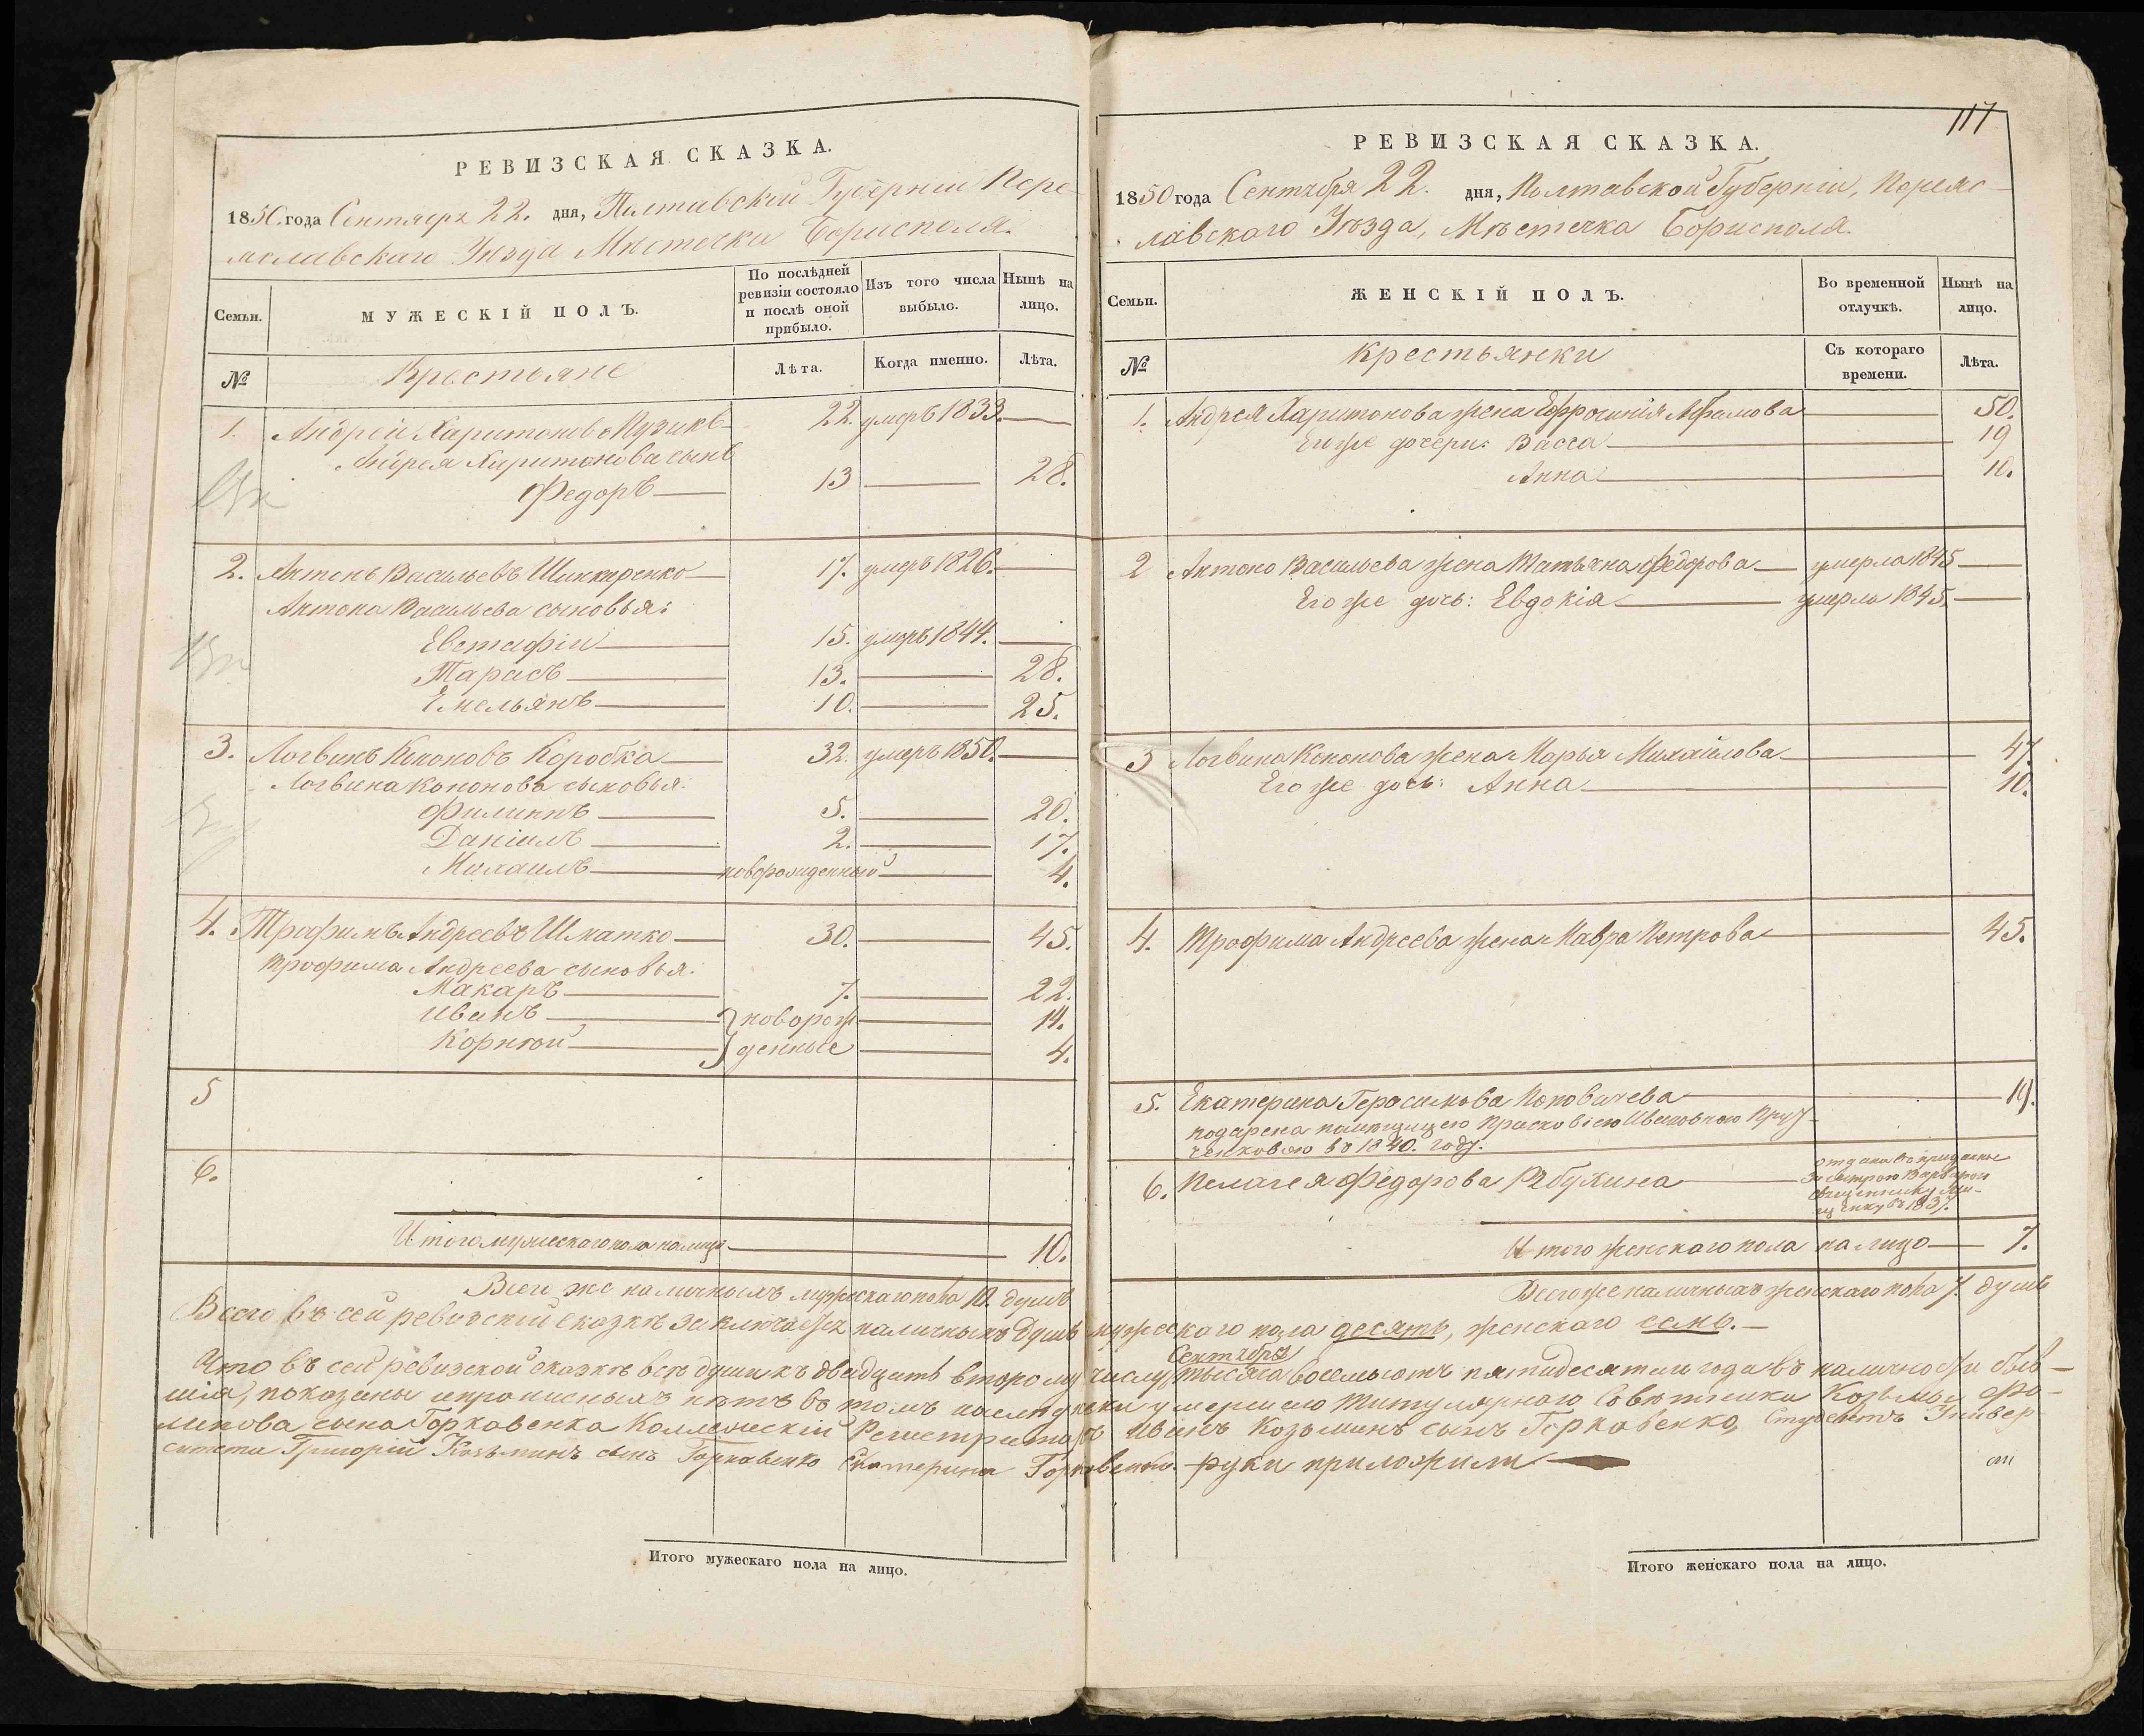 РЕВИЗСКАЯ СКАЗКА.
1850 года Сентября 22. дня, Полтавской Губерніи Пере-
яславскаго Уѣзда Мѣстечка Борисполя.
Семьи.
МУЖЕСКІЙ ПОЛЪ.
По послѣдней ревизіи состояло и послѣ оной прибыло.
Изъ того числа выбыло.
Нынѣ на лицо.
№
Крестьяне
Лѣта.
Когда именно.
Лѣта.
1. Андрей Харитоновъ Музика 22. умеръ 1833.
Андрея Харитонова сынъ
Федоръ 13 28.
2. Антонъ Васильевъ Шинкаренко 17. умеръ 1826.
Антона Васильева сыновья:
Евстафій 15. умеръ 1844.
Тарасъ 13. 28.
Емельянъ 10. 25.
3. Логвинъ Кононовъ Коробка 32. умеръ 1850.
Логвина Кононова сыновья:
Филиппъ 5. 20.
Даніилъ 2. 17.
Михаилъ новорожденный 4.
4. Трофимъ Андреевъ Шматко 30. 45.
Трофима Андреева сыновья:
Макаръ 7. 22.
Иванъ новорож 14.
Корній денные 4.
5
6.
Итого мужескаго пола на лицо 10.
Всего же наличныхъ мужескаго пола 10. душъ
РЕВИЗСКАЯ СКАЗКА.
117
1850 года Сентября 22. дня, Полтавской Губерніи, Переяс-
лавскаго Уѣзда, Мѣстечка Борисполя.
Семьи.
ЖЕНСКІЙ ПОЛЪ.
Во временной отлучкѣ.
Нынѣ на лицо.
№
Крестьянки
Съ котораго времени.
Лѣта.
1. Андрея Харитонова жена Ефросинія 50.
Его же дочери: Васса 19
Анна 10.
2 Антона Васильева жена Татьяна Федорова умерла 1845
Его же дочь: Евдокія умерла 1845.
3 Логвина Кононова жена Марья Михайлова 47.
Его же дочь: Анна 10.
4. Трофима Андреева жена Мавра Петрова 45.
5. Екатерина Герасимова Поповичева 19.
подарена помещицею Прасковіею Ивановною
въ 1840. году.
6. Пелагея Федорова отдана въ приданные
за сестрою Варварою
священнику
въ 1837.
Итого женскаго пола на лицо 7.
Всего же наличныхъ женскаго пола 7. душъ
Всего въ сей ревизской сказкѣ заключается наличныхъ душъ мужескаго пола десять, женскаго семь.
Сентября
Что въ сей ревизской сказкѣ всѣ души къ двадцать второму числу тысяча восемьсотъ пятидесятаго года въ наличности быв-
шія, показаны и прописныхъ нѣтъ въ томъ наследники умершего Титулярнаго Советника Козьмы Фо-
мінова сына Горкавенка Коллежскій Регистраторъ Иванъ Козьминъ сынъ Горкавенко, Студентъ Универ
ситета Григорій Козьминъ сынъ Горкавенко Екатерина Горкавенко руки приложили
Итого мужескаго пола на лицо.
Итого женскаго пола на лицо.